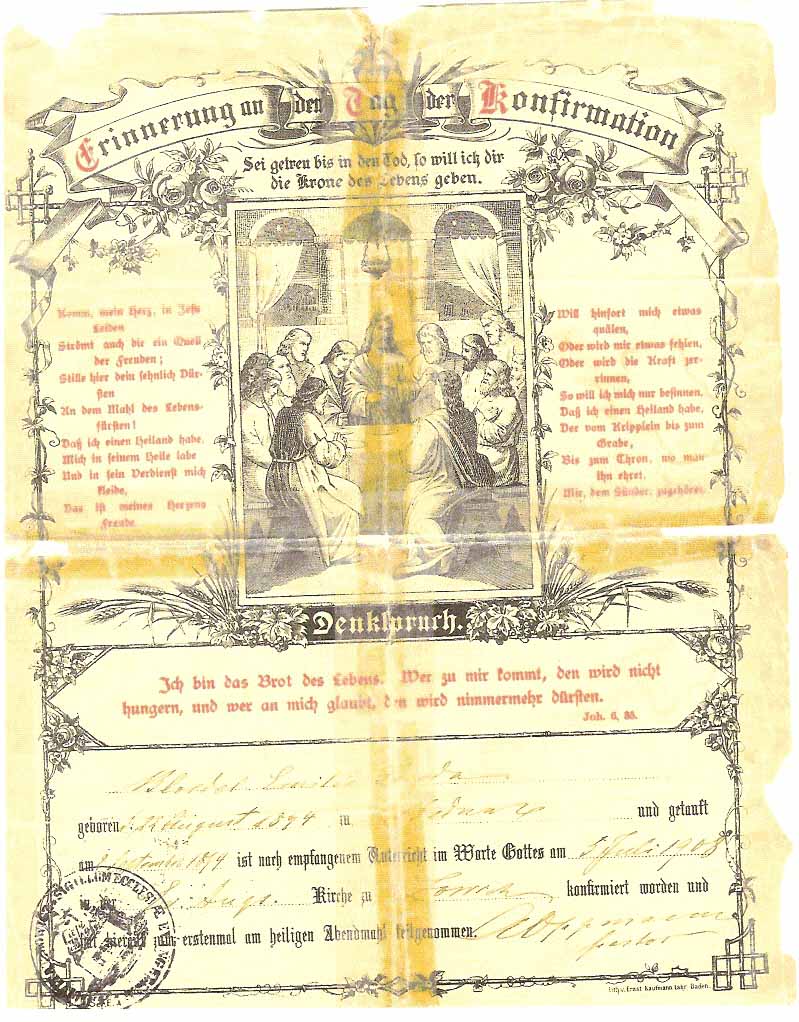 Erinnerung an den Tag der Konfirmation
Sei getreu bis in den Tod, so will ich dir
die Krone des Lebens geben.
Komm, mein Herz, in Jesu
Leiden
Strömt auch die ein Quell
der Freuden;
Stille hier dein sehnlich Dür-
sten
An dem Mahl des Lebens-
fürsten!
Daß ich einen Heiland habe,
Mich in seinem Heile labe
Und in sein Verdienst mich
kleide,
Das ist meines Herzens
Freude.
Will hinfort mich etwas
quälen,
Oder wird mir etwas fehlen,
Oder wird die Kraft zer-
rinnen,
So will ich mich nur besinnen,
Daß ich einen Heiland habe,
Der vom Kripplein bis zum
Grabe,
Bis zum Thron, wo man
ihn ehret,
Mir, dem Sünder, zugehöret.
Denkspruch.
Ich bin das Brot des Lebens. Wer zu mir kommt, den wird nicht
hungern, und wer an mich glaubt, den wird nimmermehr dürsten.
Joh. 6, 35.
geboren August 1894 zu und getauft
am 1894 ist nach empfangenem Unterricht im Worte Gottes am 5 Juli 1908
in der Kirche zu konfirmiert worden und
hat hierauf zum erstenmal am heiligen Abendmahl teilgenommen.
Pastor
SIGILLUM ECCLESIÆ
Lith. v. Ernst Kaufmann Lahr, Baden.